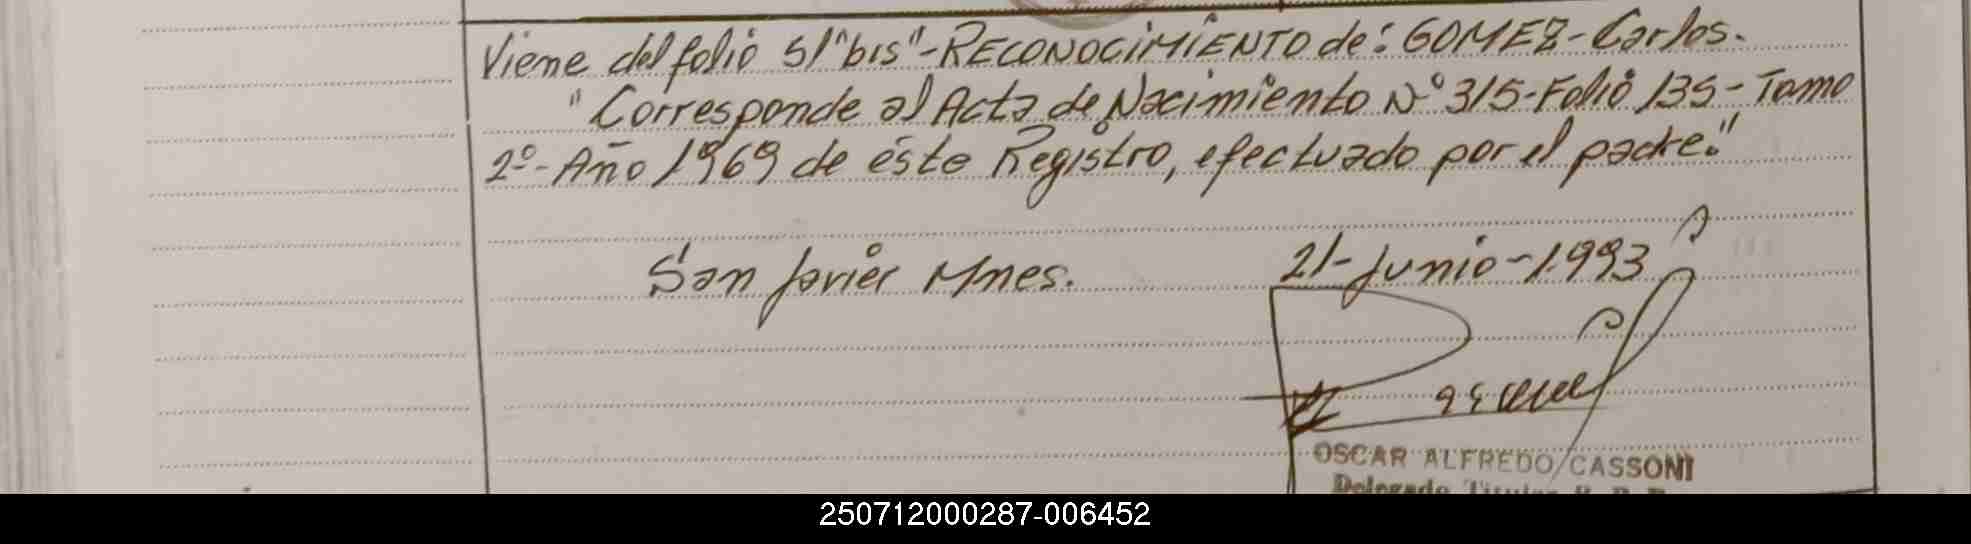 Viene del folio 51 "bis"-RECONOCIMIENTO de: GOMEZ-Carlos.
"Corresponde al Acta de Nacimiento N° 315-Folio 135-Tomo
2º-Año 1969 de éste Registro, efectuado por el padre."
San Javier Mnes. 21-Junio-1993
OSCAR ALFREDO CASSONI
Delegado Titular
250712000287-006452